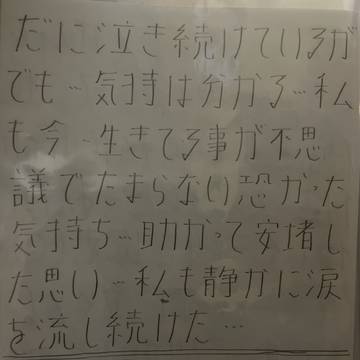 だに泣き続けているが
でも…気持は分かる…私
も今…生きてる事が不思
議でたまらない恐かった
気持ち…助かって安堵し
た思い…私も静かに涙
を流し続けた…